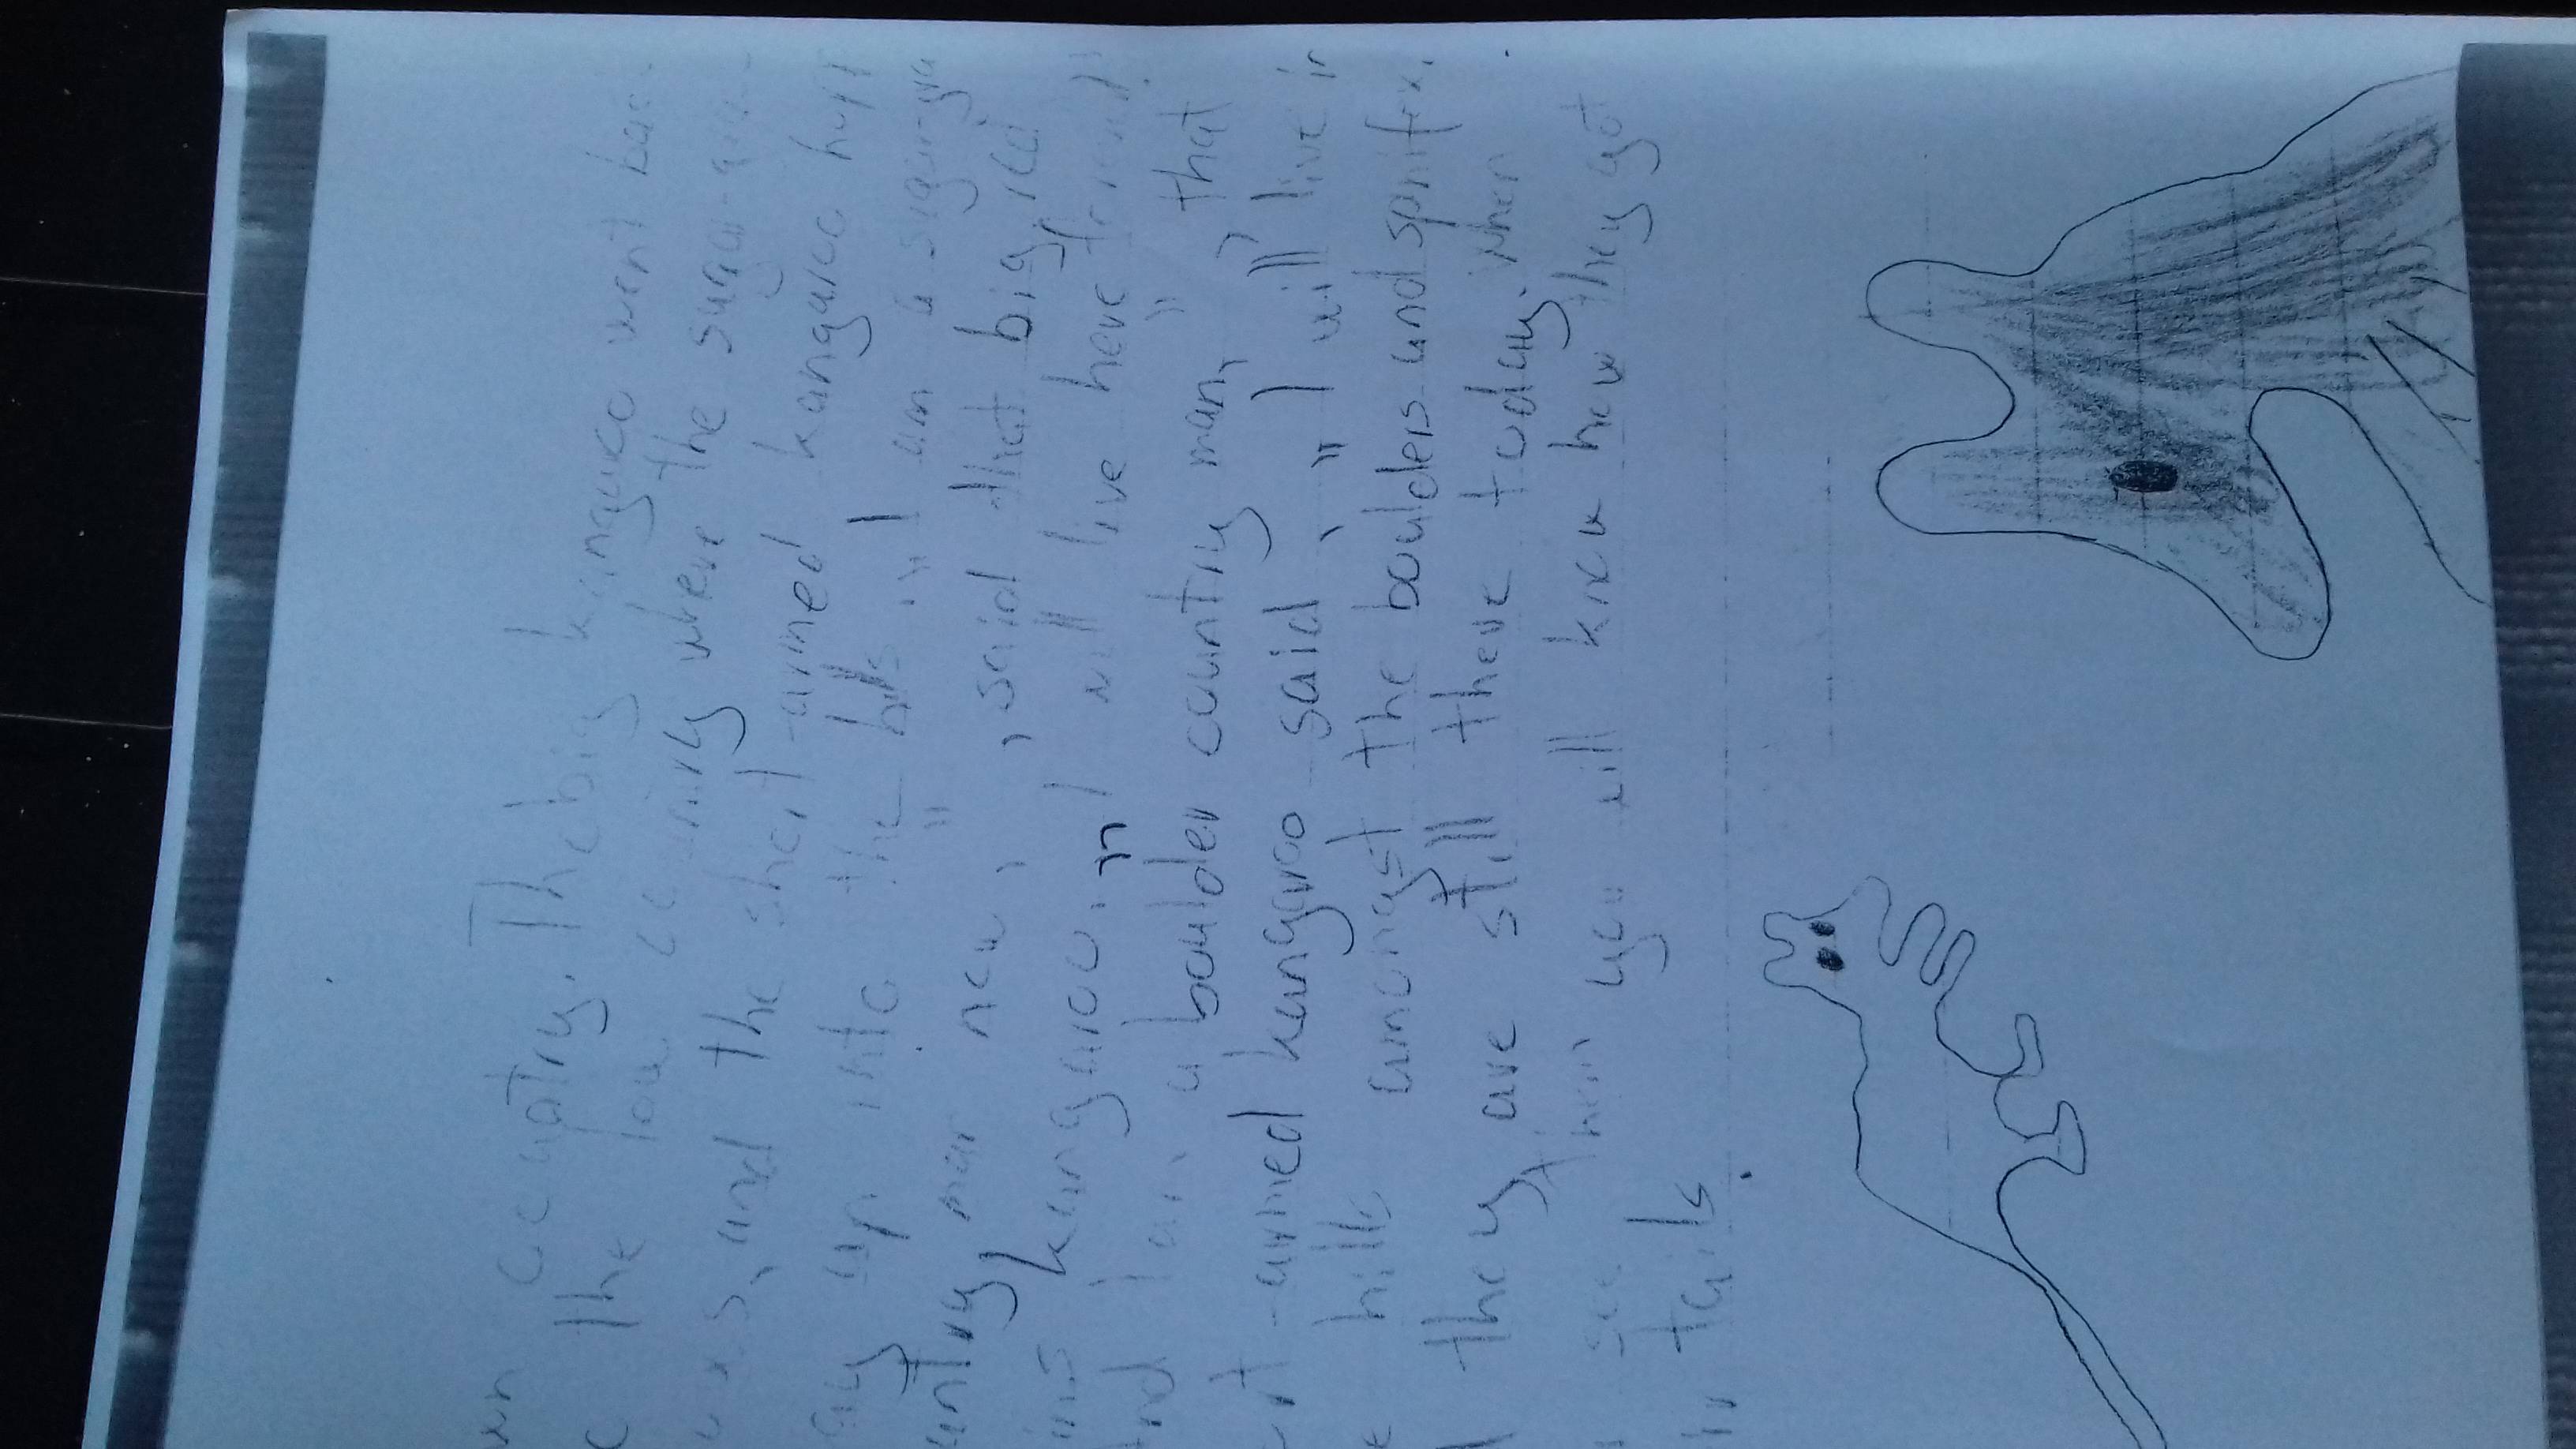 wn country. The big kangaroo went bac
the low country where the sugar-gum
ws, and the short-armed kangaroo hops
ay up into the hills. " I am a sugargu
untry man now, said that big red
ins kangaroo, " I will live here friend."
nd I am a boulder country man, " that
rt-armed kangaroo said, " I will live in
e hills amongst the boulders and spinifex.
they are still there today. When
see them you will know how they got
ir tails.